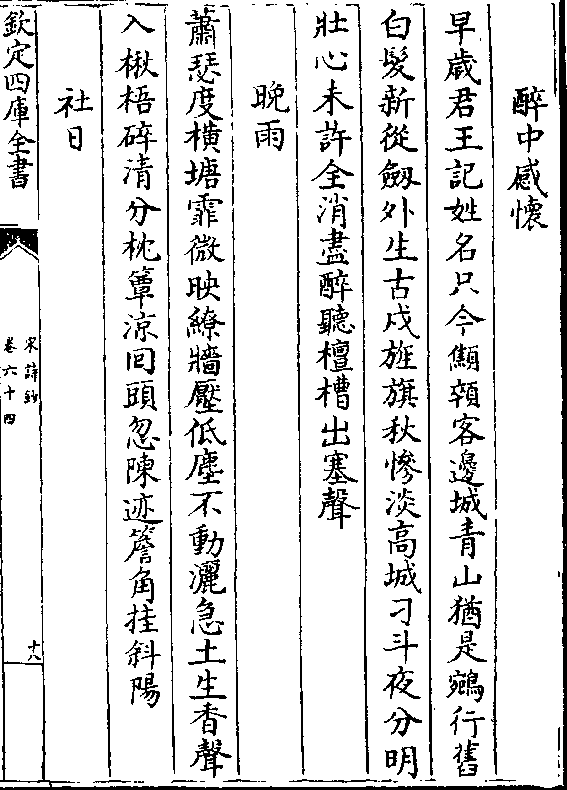 醉中感懷
早歳君王記姓名只今顦顇客邊城青山猶是鵷行舊
白髪新從劔外生古戍旌旗秋慘淡高城刁斗夜分明
壯心未許全消盡醉聽檀槽出塞聲
晚雨
蕭瑟度橫塘霏微映繚牆壓低塵不動灑急土生香聲
入楸梧碎清分枕簟涼回頭忽陳迹簷角挂斜陽
社日
欽定四庫全書
宋詩鈔
卷六十四
十八